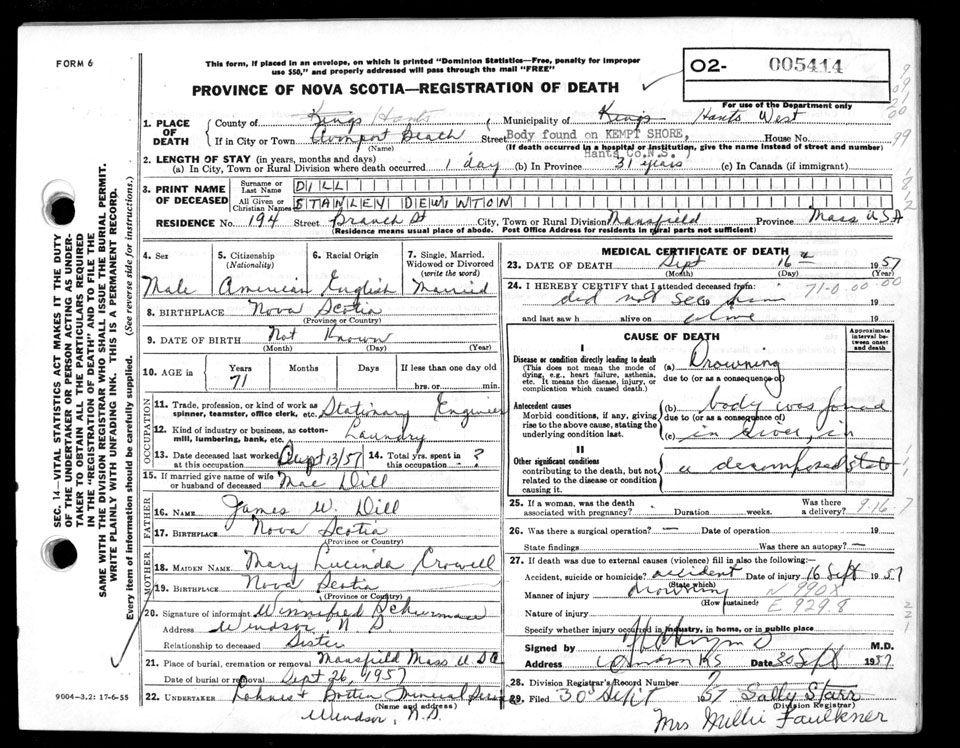 FORM 6
This form, if placed in an envelope, on which is printed "Dominion Statistics—Free, penalty for improper
use $50," and properly addressed will pass through the mail "FREE"
PROVINCE OF NOVA SCOTIA—REGISTRATION OF DEATH
O2- 005414
For use of the Department only
1. PLACE OF DEATH
County of Kings Hants Municipality of Kings Hants West
If in City or Town Avonport Beach Street Body found on KEMPT SHORE, House No.
(Name) (If death occurred in a hospital or institution, give the name instead of street and number)
Hants Co. N.S.)
2. LENGTH OF STAY (in years, months and days)
(a) In City, Town or Rural Division where death occurred 1 day (b) In Province 31 years (c) In Canada (if immigrant)
3. PRINT NAME OF DECEASED
Surname or Last Name DILL
All Given or Christian Names STANLEY DEWINTON
RESIDENCE No. 194 Street Branch St City, Town or Rural Division Mansfield Province Mass U.S.A
(Residence means usual place of abode. Post Office Address for residents in rural parts not sufficient)
4. Sex
Male
5. Citizenship
(Nationality)
American
6. Racial Origin
English
7. Single, Married, Widowed or Divorced
(write the word)
Married
8. BIRTHPLACE Nova Scotia
(Province or Country)
9. DATE OF BIRTH Not Known
(Month) (Day) (Year)
10. AGE in Years Months Days If less than one day old
71 hrs. or min.
OCCUPATION
11. Trade, profession, or kind of work as
spinner, teamster, office clerk, etc. Stationary Engineer
12. Kind of industry or business, as cotton-
mill, lumbering, bank, etc. Laundry
13. Date deceased last worked at this occupation Sept 13/57 14. Total yrs. spent in this occupation - ?
15. If married give name of wife
or husband of deceased Mae Dill
FATHER
16. NAME James W. Dill
17. BIRTHPLACE Nova Scotia
(Province or Country)
MOTHER
18. MAIDEN NAME Mary Lucinda Crowell
19. BIRTHPLACE Nova Scotia
(Province or Country)
20. Signature of informant Winnifred Schurman
Address Windsor N S
Relationship to deceased Sister
21. Place of burial, cremation or removal Mansfield Mass U S A
Date of burial or removal Sept 26, 1957
22. UNDERTAKER
(Name and address)
Windsor, N.S.
9004—3.2: 17-6-55
MEDICAL CERTIFICATE OF DEATH
23. DATE OF DEATH Sept 16 1957
(Month) (Day) (Year)
24. I HEREBY CERTIFY that I attended deceased from: 71-0.00-00
did not see him 19
and last saw h alive on alive 19
CAUSE OF DEATH
Approximate interval between onset and death
I
Disease or condition directly leading to death
(This does not mean the mode of
dying, e.g., heart failure, asthenia,
etc. It means the disease, injury, or
complication which caused death.)
(a) Drowning
due to (or as a consequence of)
Antecedent causes
Morbid conditions, if any, giving
rise to the above cause, stating the
underlying condition last.
(b) body was found
due to (or as a consequence of)
(c) in river, in
II
Other significant conditions
contributing to the death, but not
related to the disease or condition
causing it.
a decomposed state
25. If a woman, was the death associated with pregnancy? Duration weeks. Was there a delivery? 9-16-7
26. Was there a surgical operation? — Date of operation 19
State findings Was there an autopsy? —
27. If death was due to external causes (violence) fill in also the following:—
Accident, suicide or homicide? accident Date of injury 16 Sept 1957
(State which)
Manner of injury drowning N 990X
(How sustained) E 929.8
Nature of injury
Specify whether injury occurred in industry, in home, or in public place
Signed by M.D.
Address Date 30 Sept 1957
28. Division Registrar's Record Number 7
29. Filed 30 Sept 57 Sally Starr
(Division Registrar)
Mrs Millie Faulkner
SEC. 14—VITAL STATISTICS ACT MAKES IT THE DUTY
OF THE UNDERTAKER OR PERSON ACTING AS UNDER-
TAKER TO OBTAIN ALL THE PARTICULARS REQUIRED
IN THE "REGISTRATION OF DEATH" AND TO FILE THE
SAME WITH THE DIVISION REGISTRAR WHO SHALL ISSUE THE BURIAL PERMIT.
WRITE PLAINLY WITH UNFADING INK. THIS IS A PERMANENT RECORD.
Every item of information should be carefully supplied. (See reverse side for instructions.)